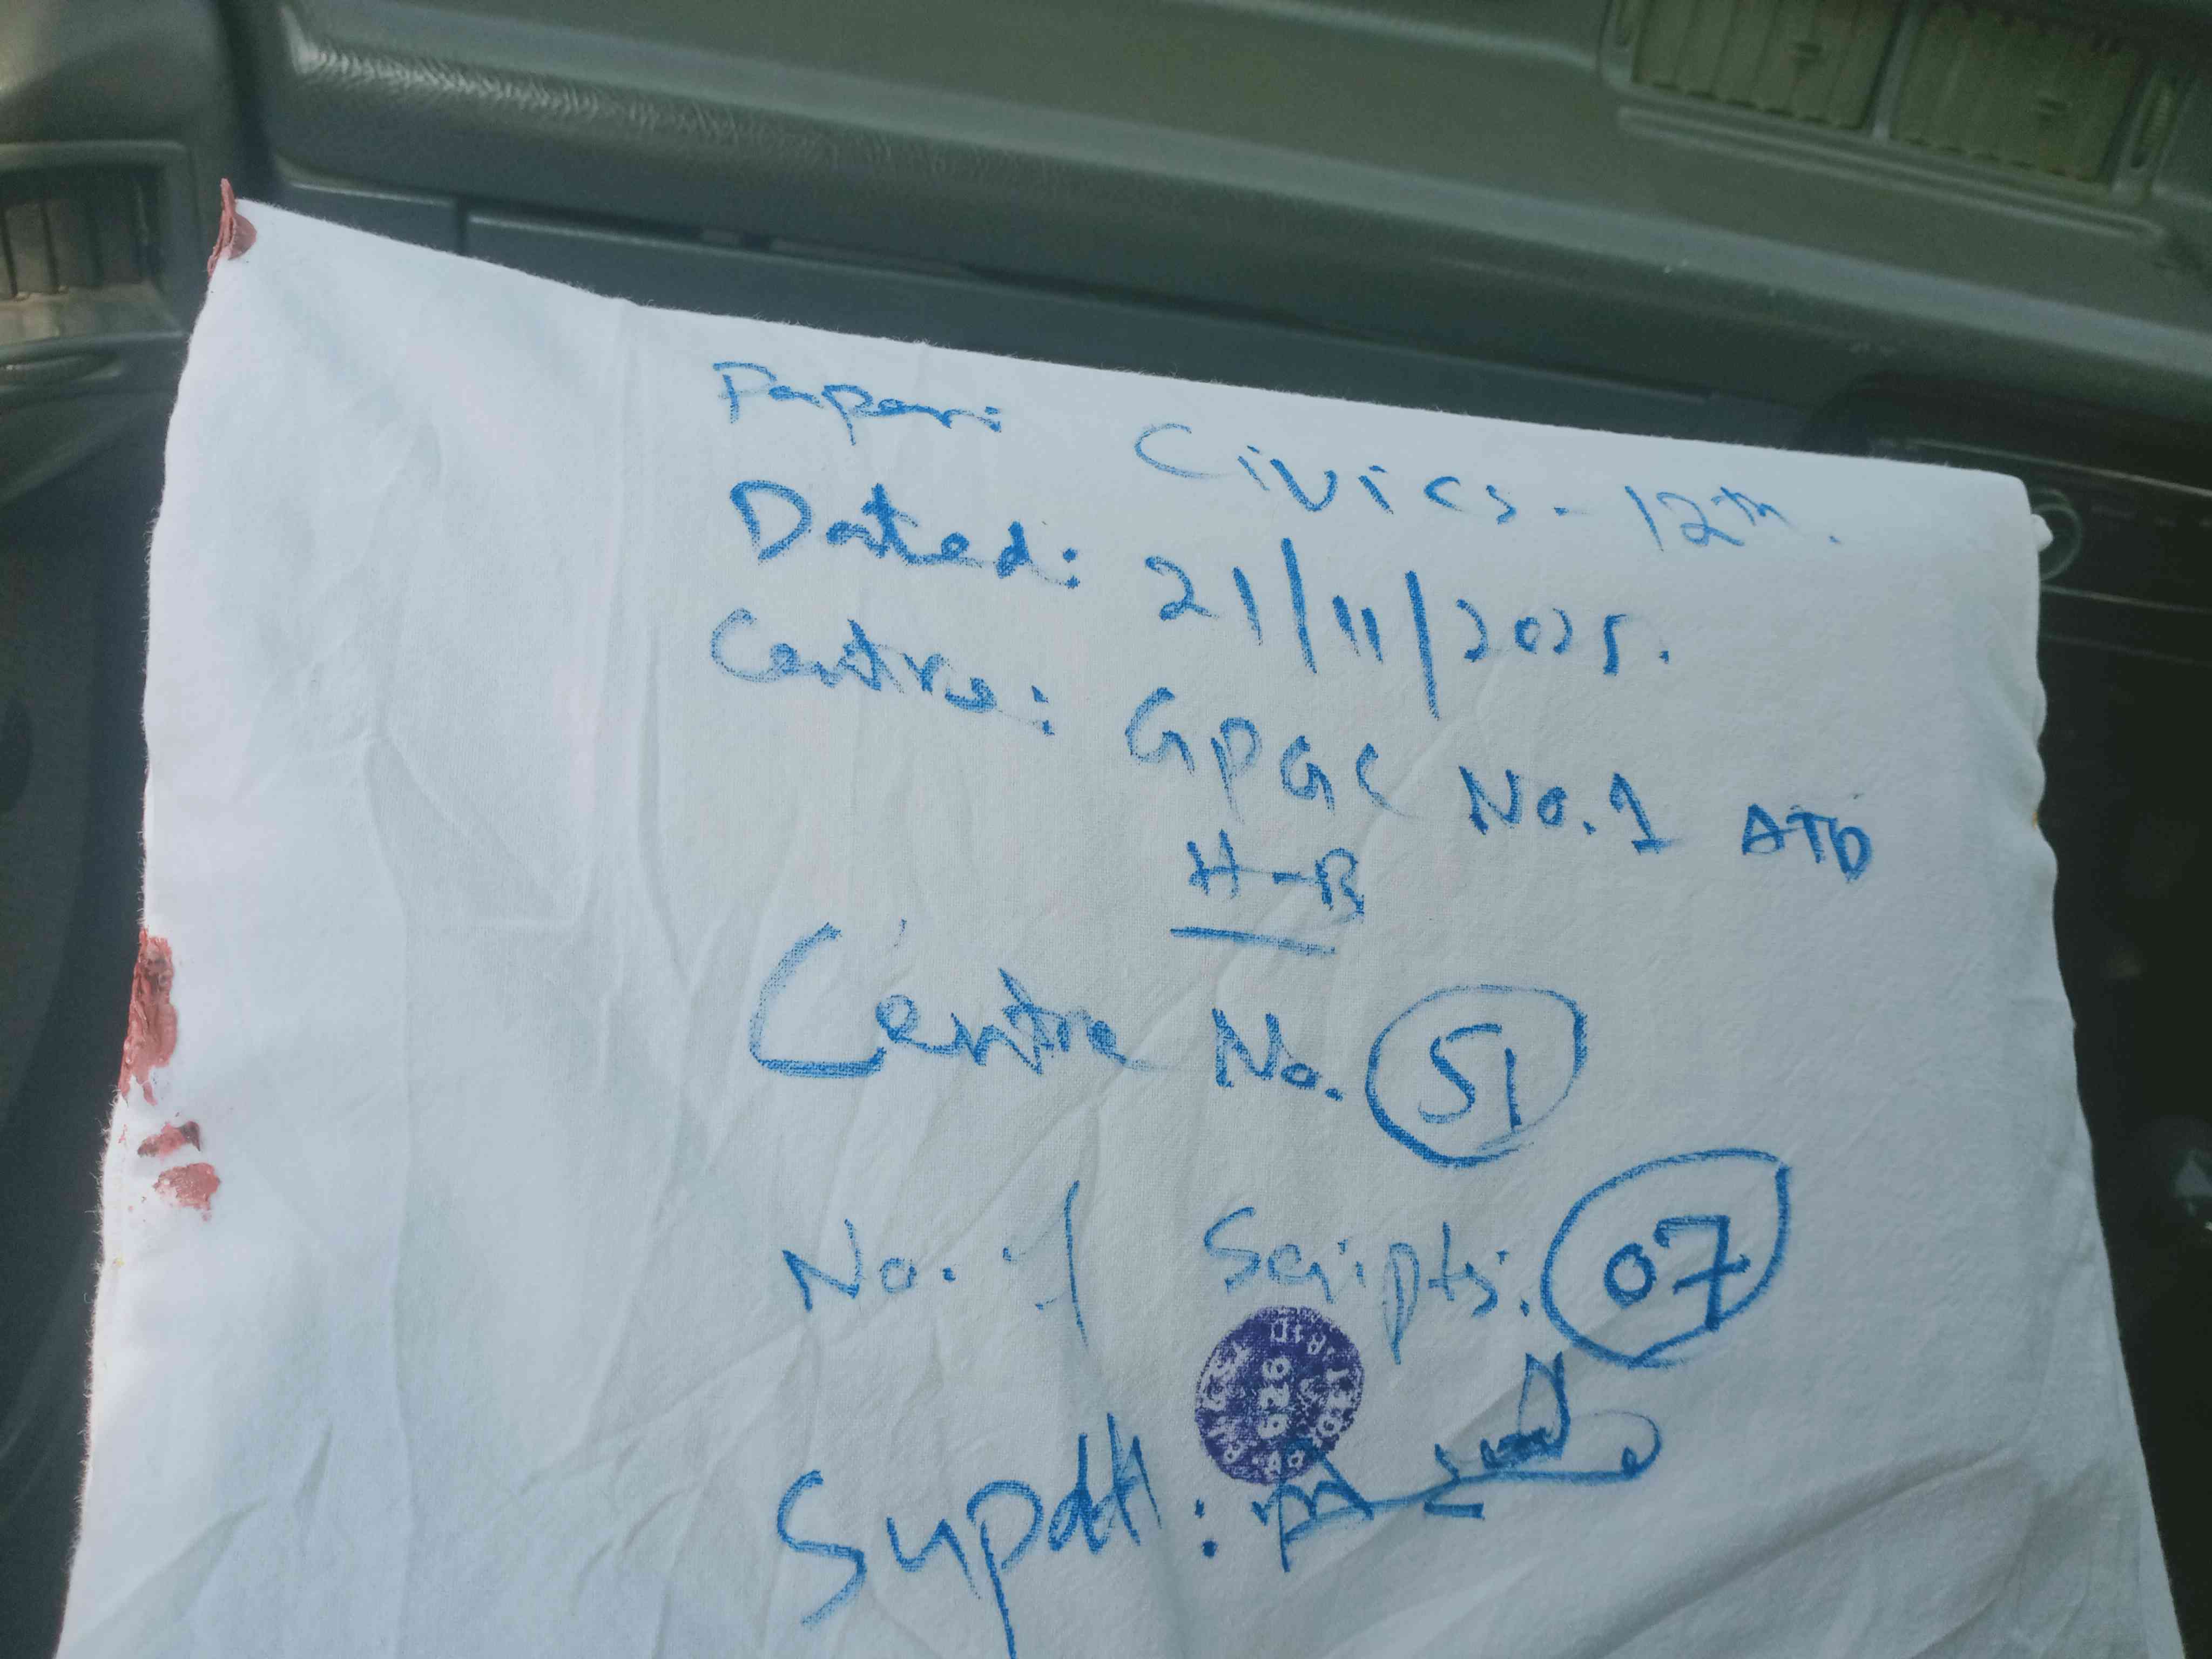 Paper: Civics - 12th.
Dated: 21/11/2025.
Centre: GPGC No.1 ATD
H-B
Centre No. 51
No. of Scripts. 07
Supdtt: